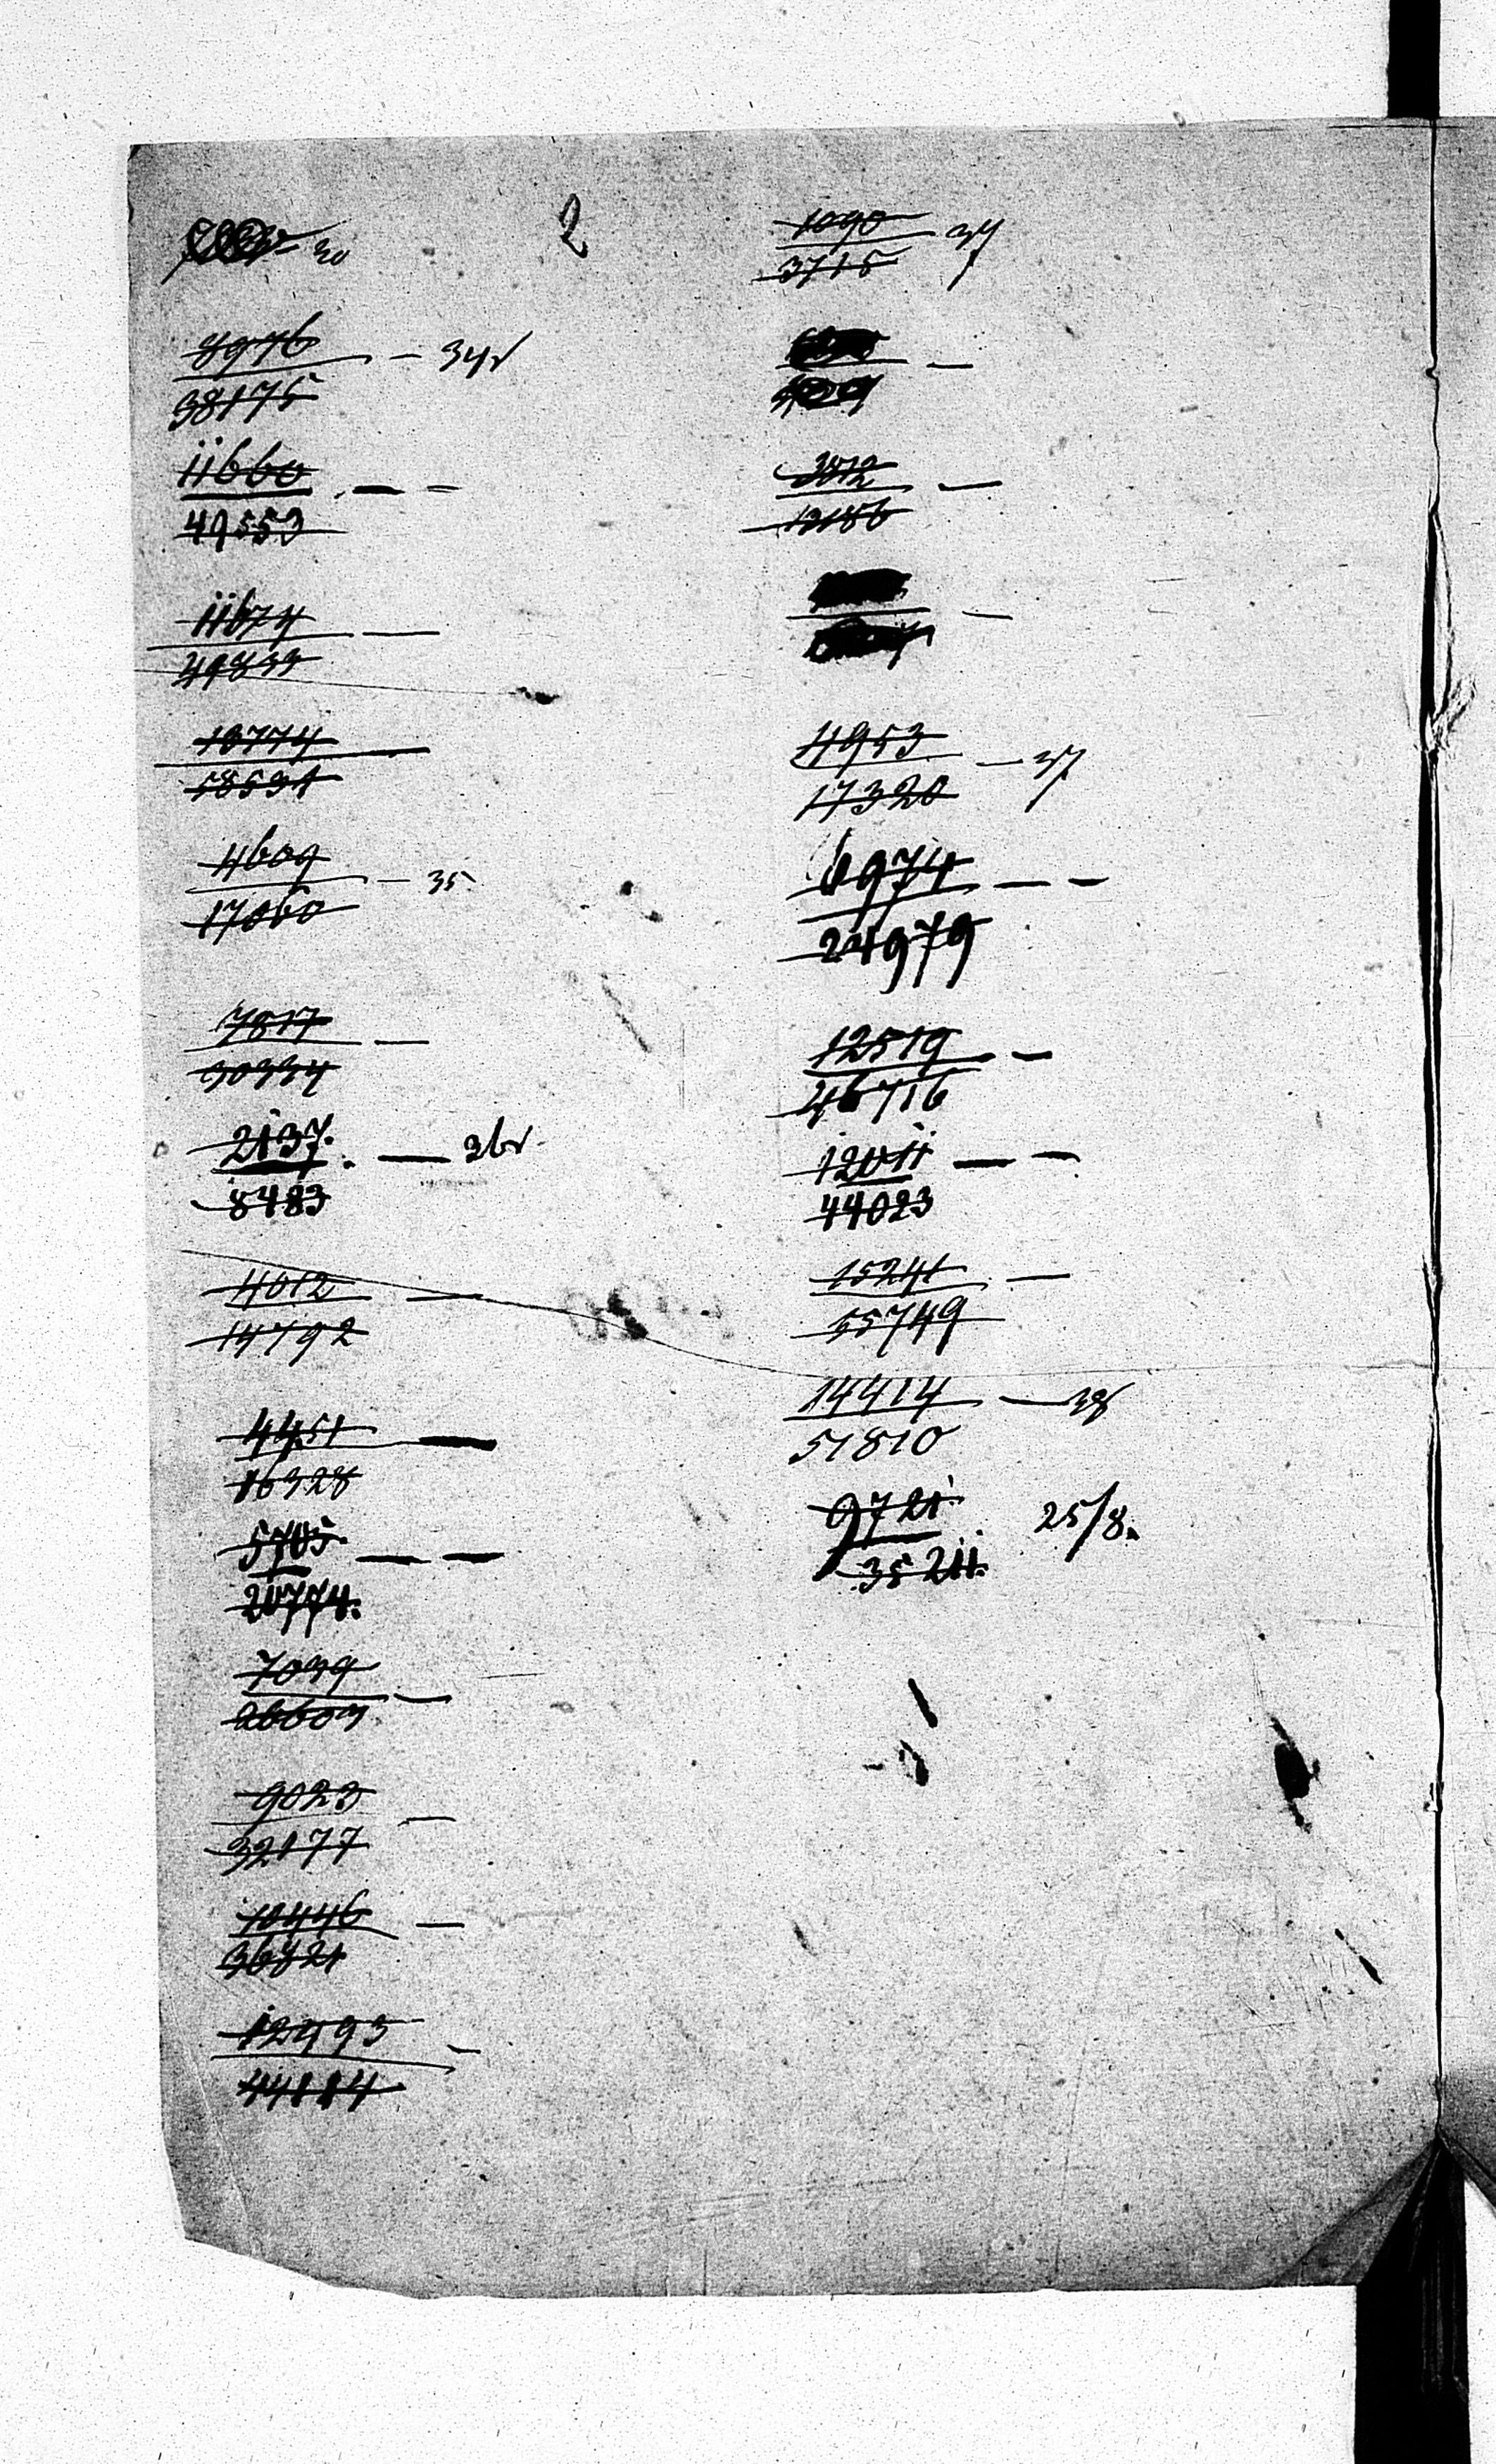 30
2
8976 — 34r
38175
11660 — —
49553
11674 —
49833
—
4609 — 35
17060
7817 —
30334
2137. — 36r
8483
4012 —
14792
4451 —
16328
5705. — —
20774.
7039 —
26603
9023 —
32177
10446 —
36821
12493 —
1090 — 37
3715
—
3812 —
13186
—
4953 — 37
17320
6974 — —
24979
12519 —
46716
12011 — —
44023
15241 —
55749
14414 — 38
51810
9721. 25/8.
35211.